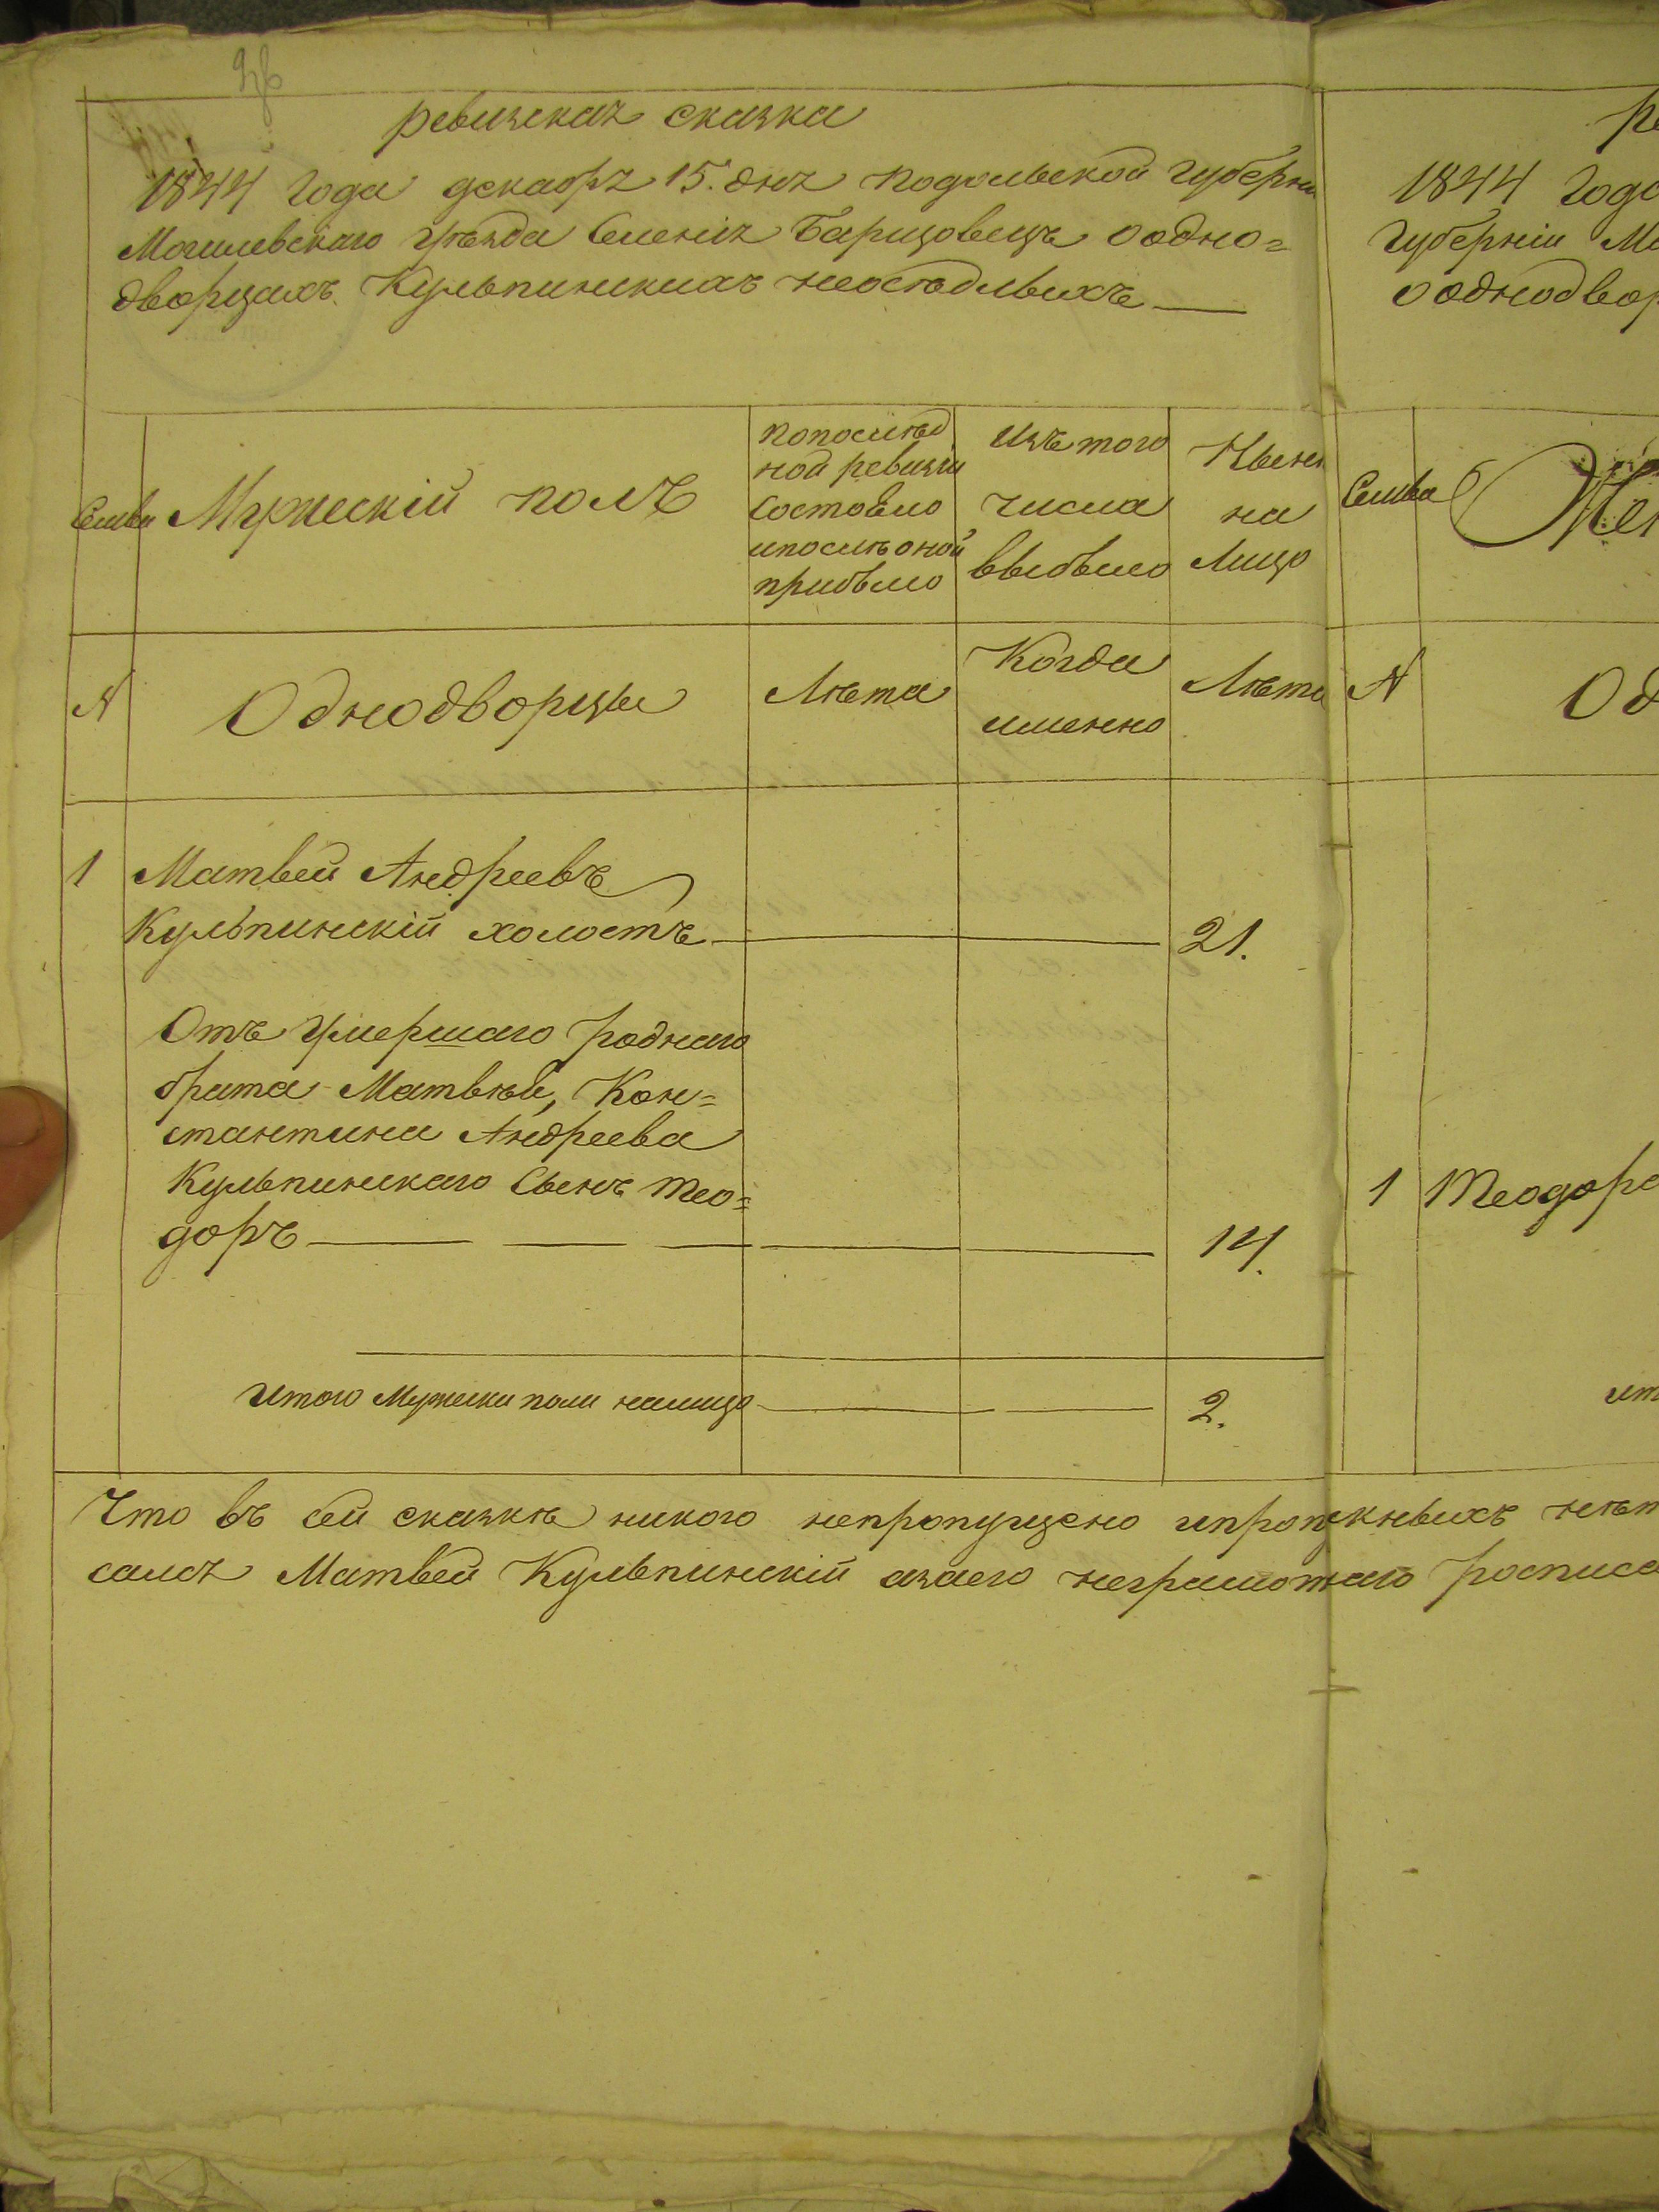 ревизская сказка
1844 года декабря 15. дня подольской губерни
Могилевскаго уѣзда Селенія Барщовецъ о одно=
дворцахъ Кульпинскихъ неосѣдлыхъ
Семьи
Мужескій полъ
попослѣд
ной ревизіи
состояло
ипослѣ оной
прибыло
Изъ того
числа
выбыло
Ныне
на
Лицо
№
Однодворцы
Лѣта
Когда
именно
Лѣта
1 Матвей Андреевъ
Кульпинскій холостъ 21.
Отъ умершаго роднаго
брата Матвѣя, Кон=
стантина Андреева
Кульпинскаго Сынъ Тео=
доръ 14.
Итого Мужеска пола налицо 2.
Что въ сей сказкѣ никого непропущено ипрописныхъ нѣт
самъ Матвей Кульпинскій азаего неграмотнаго росписа
ре
1844 Года
Губерніи Мо
о однодвор
Семьи Жен
№ Од
1 Теодора
ит